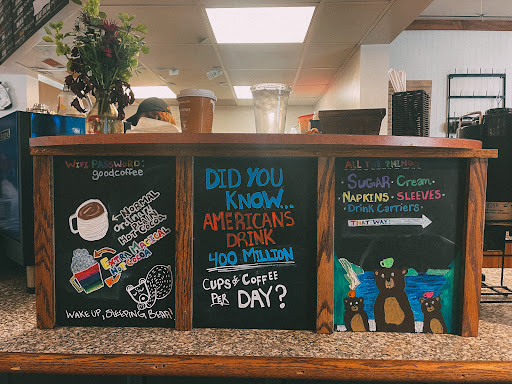 WIFI PASSWORD:
goodcoffee
NORMAL
ORDINARY
PLAIN
HOT COCOA
EXTRA MAGICAL
HOT COCOA
WAKE UP, SLEEPING BEAR!
DID YOU
KNOW...
AMERICANS
DRINK
400 MILLION
CUPS of COFFEE
PER DAY?
ALL THE THINGS
• SUGAR • Cream •
NAPKINS • SLEEVES •
• Drink Carriers •
THAT WAY!